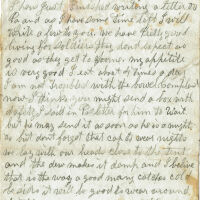 I have just finished writing a letter to
Pa and as I have some time left I will
write a few to you. We have pretty good
living for Soldiers they dont expect as
good as they get to gooner. my appetite
is very good I eat about 4 times a day
I am not troubled with the bowel complaint
now I think you might send a box with
safety I said in Pa letter for him to wait
but he may send it as soon as he is a mind
to but dont forget that cap to wear nights
we lay with our heads close to the tent
and the dew makes it damp and I believe
that is the way a good many catches cold
besides it will be good to wear around